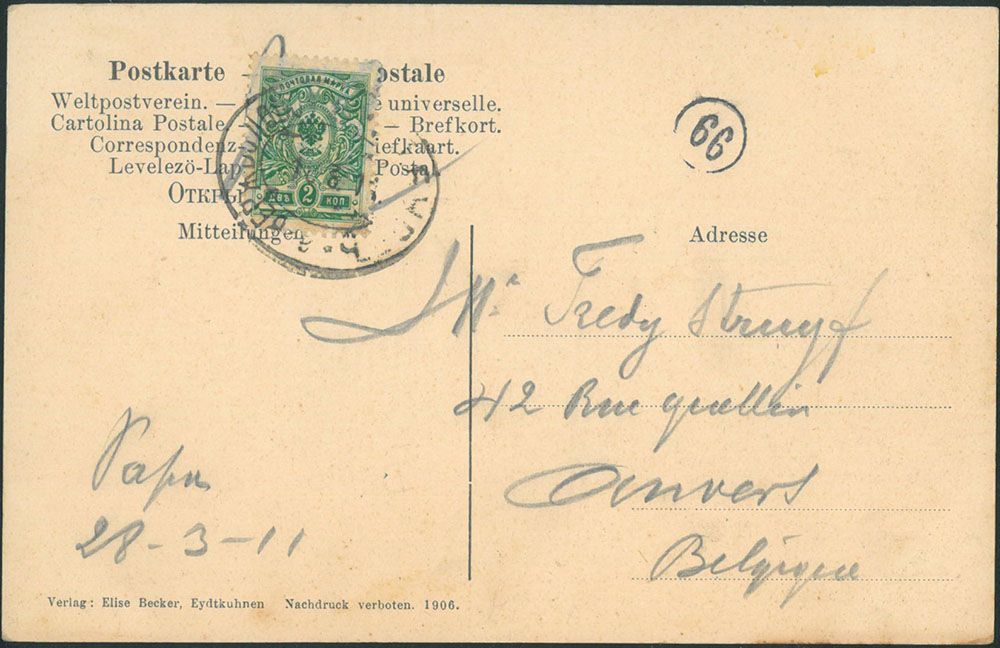 Postkarte — ostale
Weltpostverein. — e universelle.
Cartolina Postale. — Brefkort.
Correspondenz- iefkaart.
Levelezö-Lap Postal
ОТКРЫ
ПОЧТОВАЯ МАРКА
ДВѢ 2 КОП
Mitteilungen
Adresse
66
Mr Fredy Struyf
42 Rue quellin
Anvers
Belgique
Papa
28-3-11
Verlag: Elise Becker, Eydtkuhnen Nachdruck verboten. 1906.